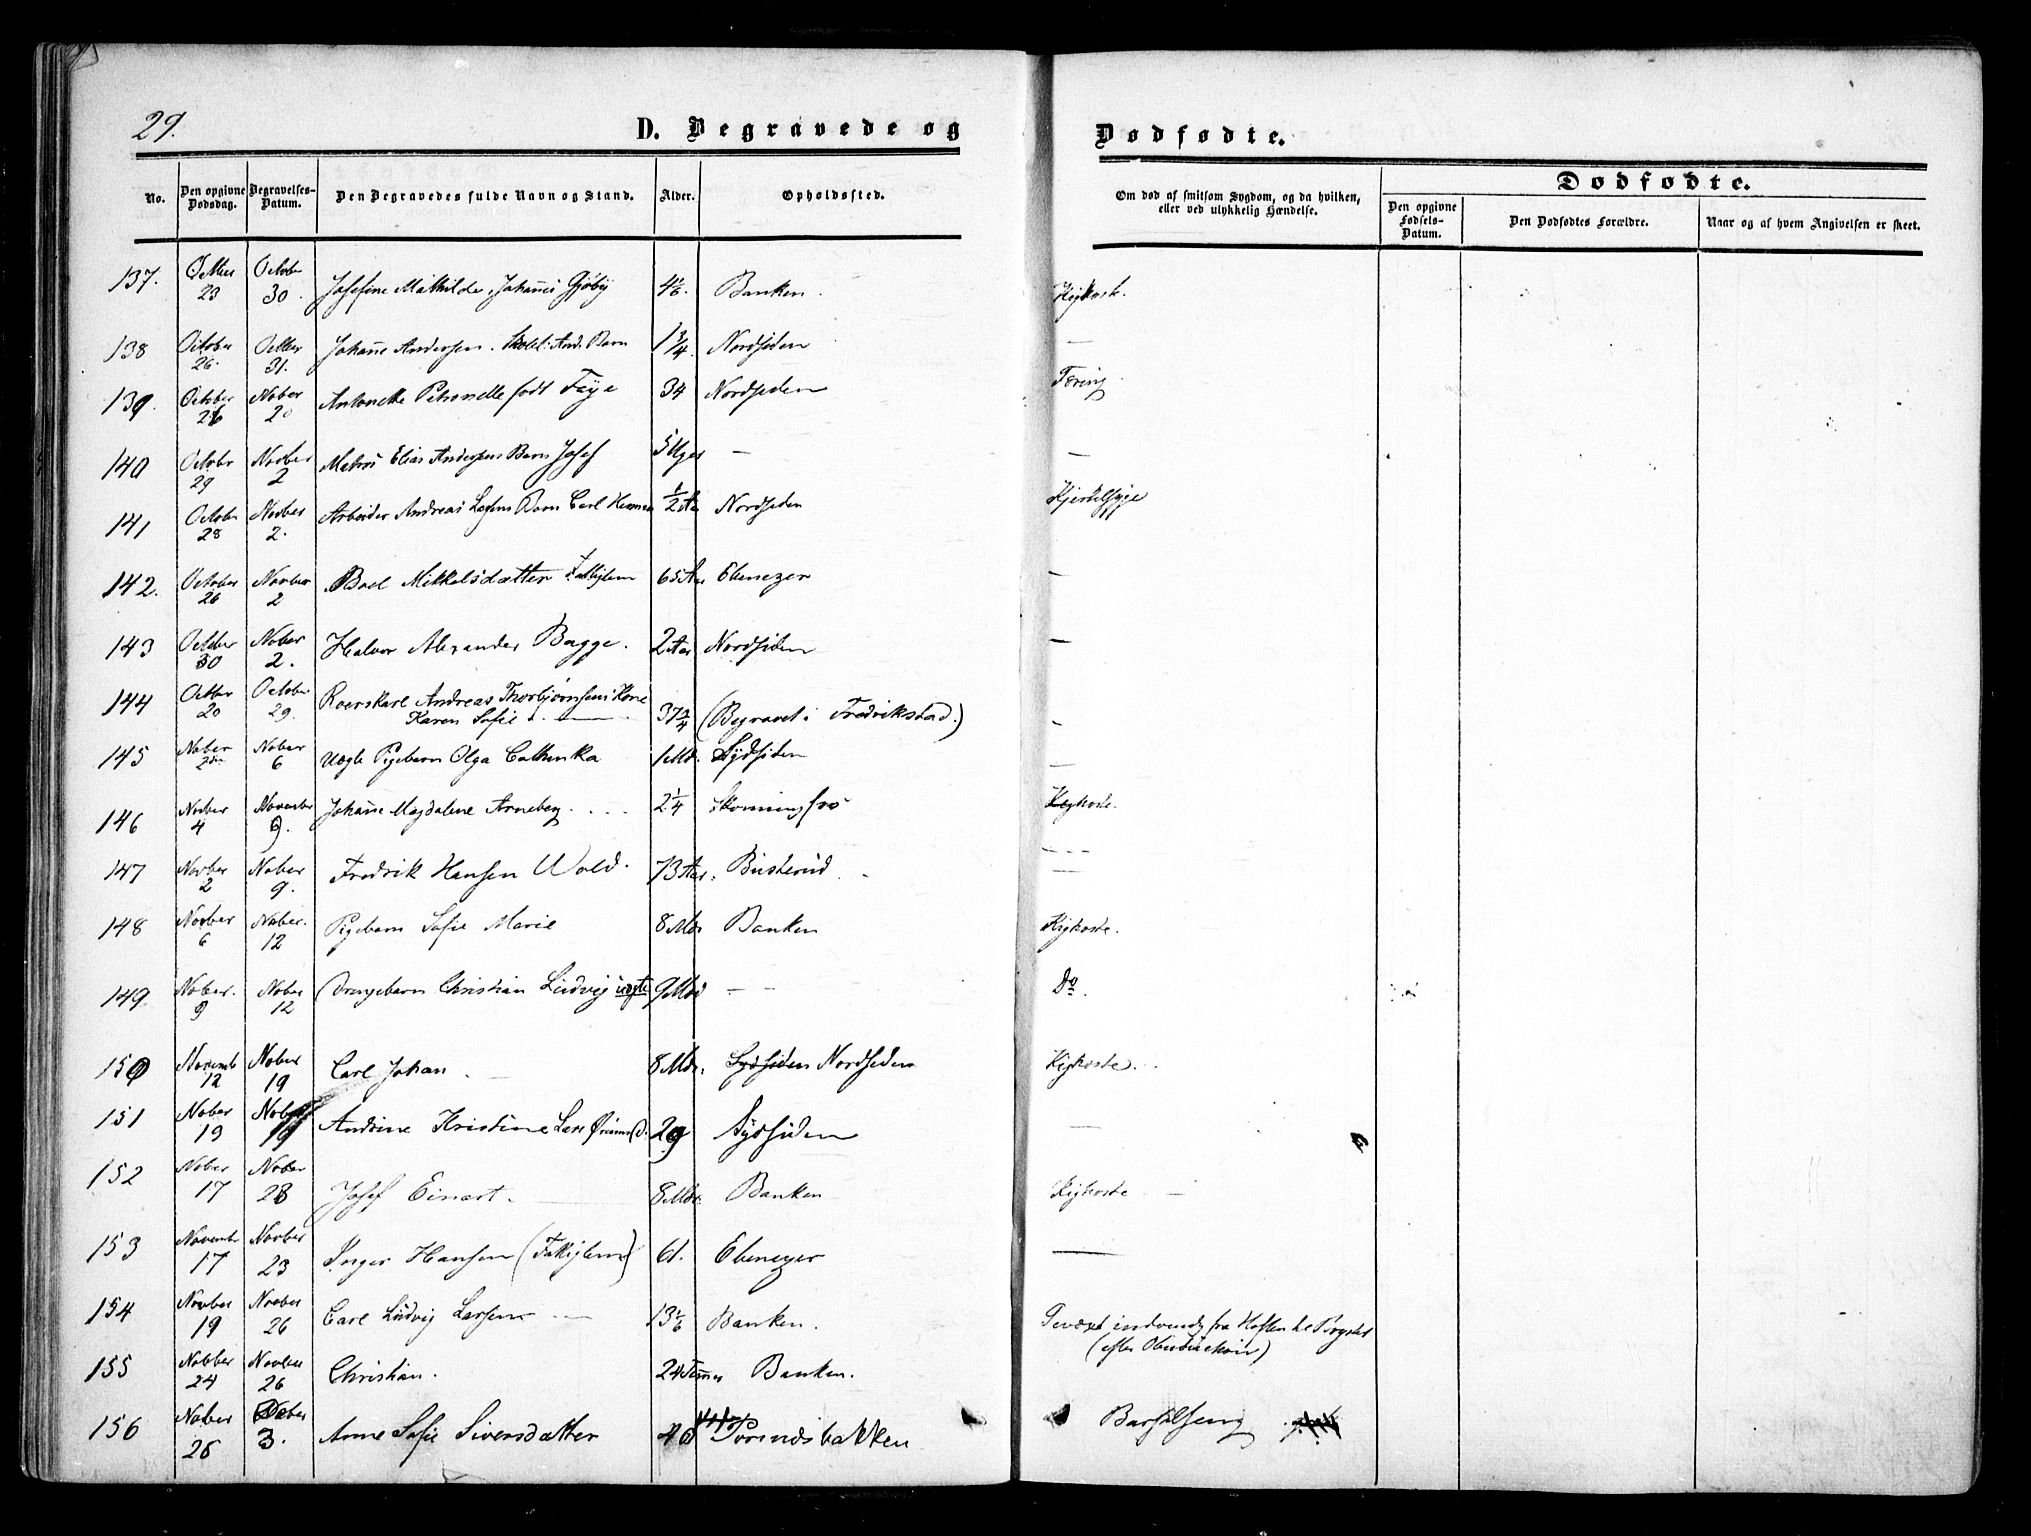 29.
D. Begravede og
Dødfødte.
No.
Den opgivne Dødsdag.
Begravelses-Datum.
Den Begravedes fulde Navn og Stand.
Alder.
Opholdssted.
Om død af smitsom Sygdom, og da hvilken, eller ved ulykkelig Hændelse.
Dødfødte.
Den opgivne Fødsels-Datum.
Den Dødfødtes Forældre.
Naar og af hvem Angivelsen er skeet.
137. 23 October 30. Josefine Mathilde Johans Gjøby Banken. Kighoste.
138 October 26. 31. Johanne Andersen. And. Barn 1 3/4 Nordsiden —
139. October 26 Nober 2 Antonette Petronelle født Faye 34 Nordsiden Tæring.
140 October 29 Novber 2 Matros Elias Andersens Barn Josef 5 Uger — —
141 October 28 Novber 2. Arbeider Andreas Barn Carl Herman 1/2 Aar Nordsiden Kjertelsyge
142. October 26 Novber 2 Boel Mikkelsdatter Fattiglem 65 Aar Ebenezer —
143 October 30 Nober 2. Halvor Alexander Bagge. 2 Aar Nordsiden —
144 October 20 October 29. Roerskarl Andreas Thorbjørnsens Kone
Karen Sofie 37 3/4 (Begravet i Fredrikstad.) -
145 Nober 2den Nober 6 Uægte Pigebarn Olga Cathinka 1 Md. Sydsiden —
146 Novber 4 November 9. Johanne Magdalene Arneberg. 2 1/4 Kighoste.
147 Novber 2 Nober 9. Fredrik Hansen Wold. 73 Aar. Busterud. - - -
148 Novber 6 Nober. 12 Pigebarn Sofie Marie 8 Mdr Banken Kighoste.
149. Nober. 9 Nober 12 Drengebarn Christian Ludvig uægte 9 Mdr — Do.
150 Novemb 12 Nober 19 Carl Johan. 8 Mdr. Sydsiden Nordsiden Kighoste.
151 Nober 13 Nober 19 Andrine Kristine Lars 29 Sydsiden —
152 Nober 17 Nober 23 Josef Einart. 8 Mdr. Banken Kighoste
153 Novembr 17 Novber 23 Inger Hansen (Fattiglem) 61. Ebenezer —
154 Novber 19 Novber 26 Carl Ludvig Larsen 13 1/6 Banken. indvendig fra Hoften til Brystet
(efter Obduction)
155 Nobber 24 26 Christian. 24 Timer Banken.
156 Nober 26 Dcber 3. Anne Sofie Siversdatter 40 Barselseng